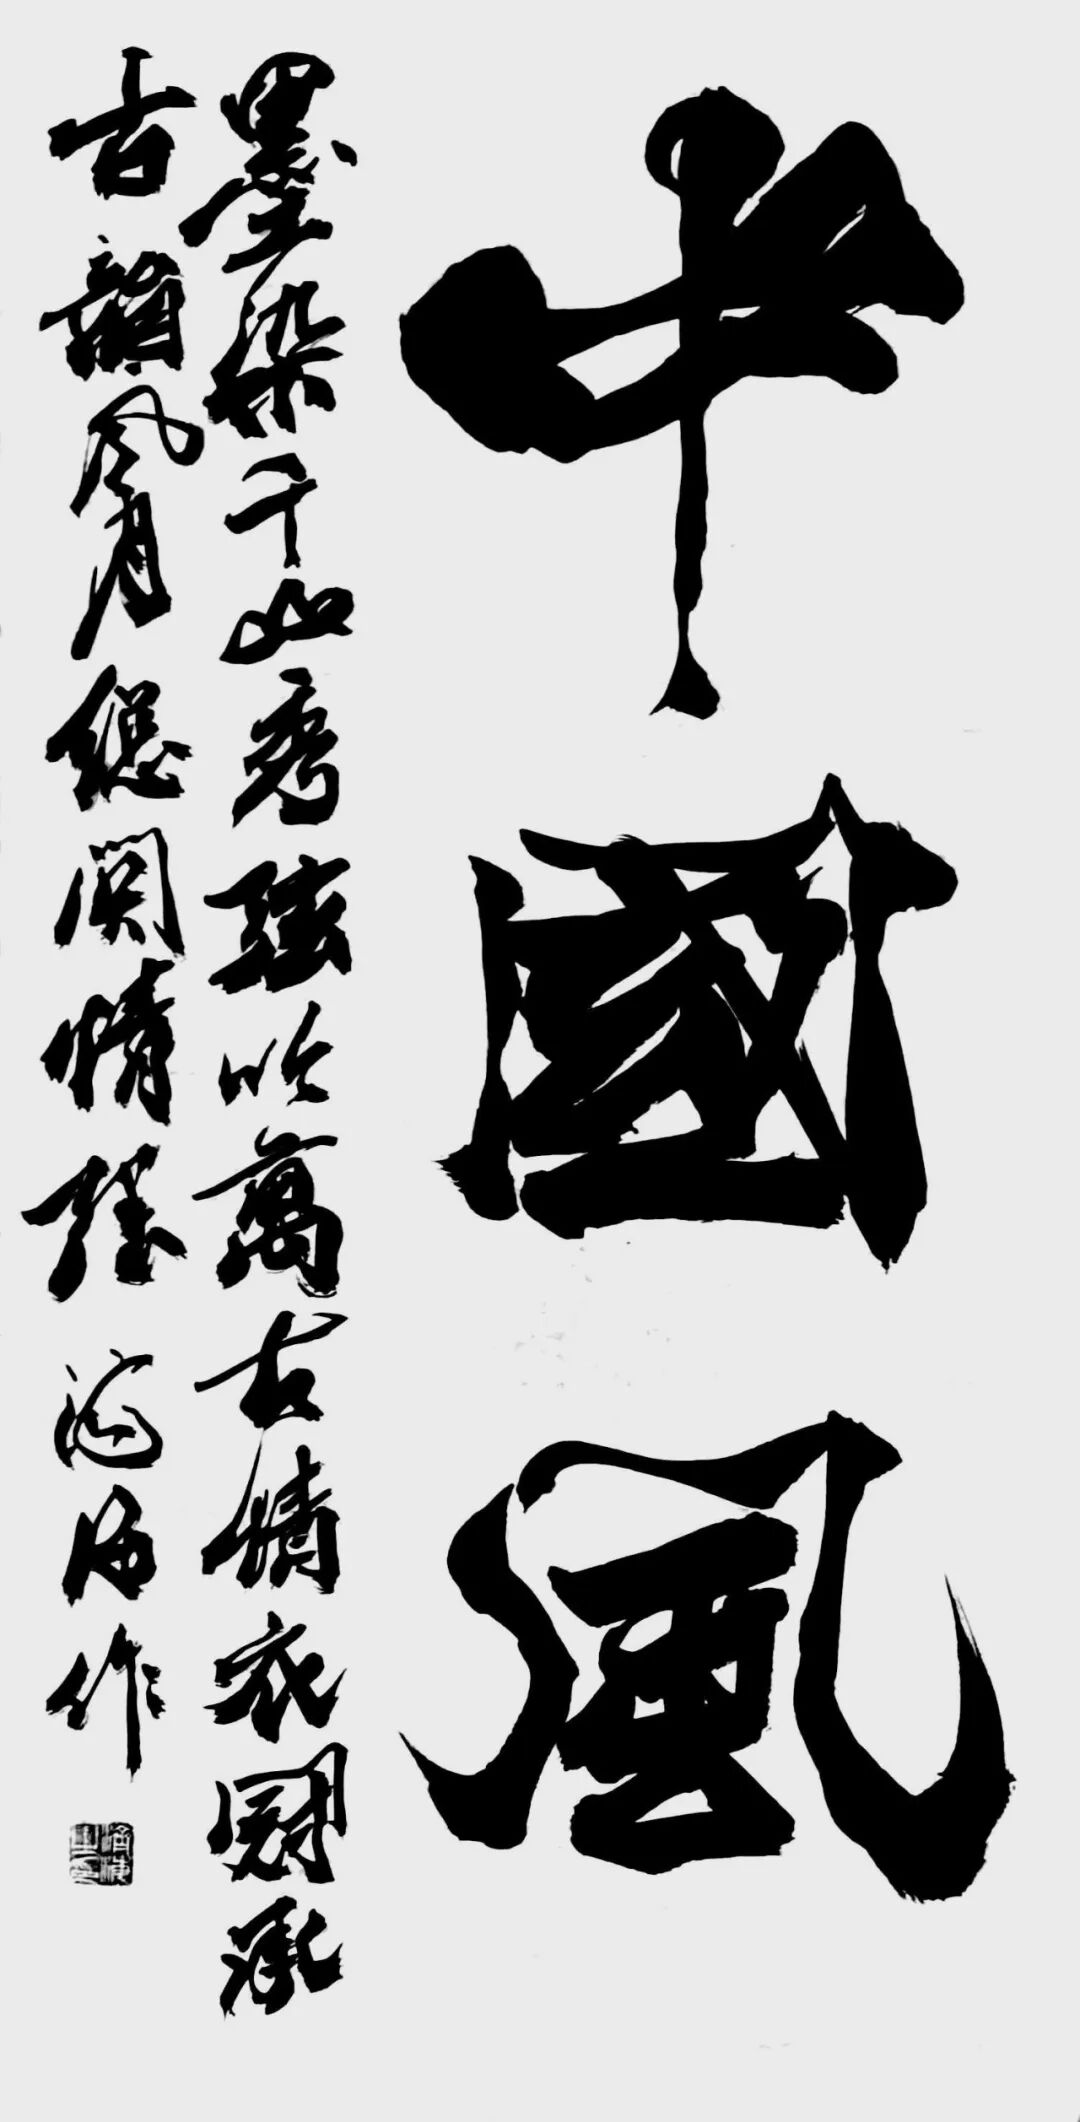 中國風
墨染千山秀弦吟萬古情衣冠承
古韻风月總関情張滄海作